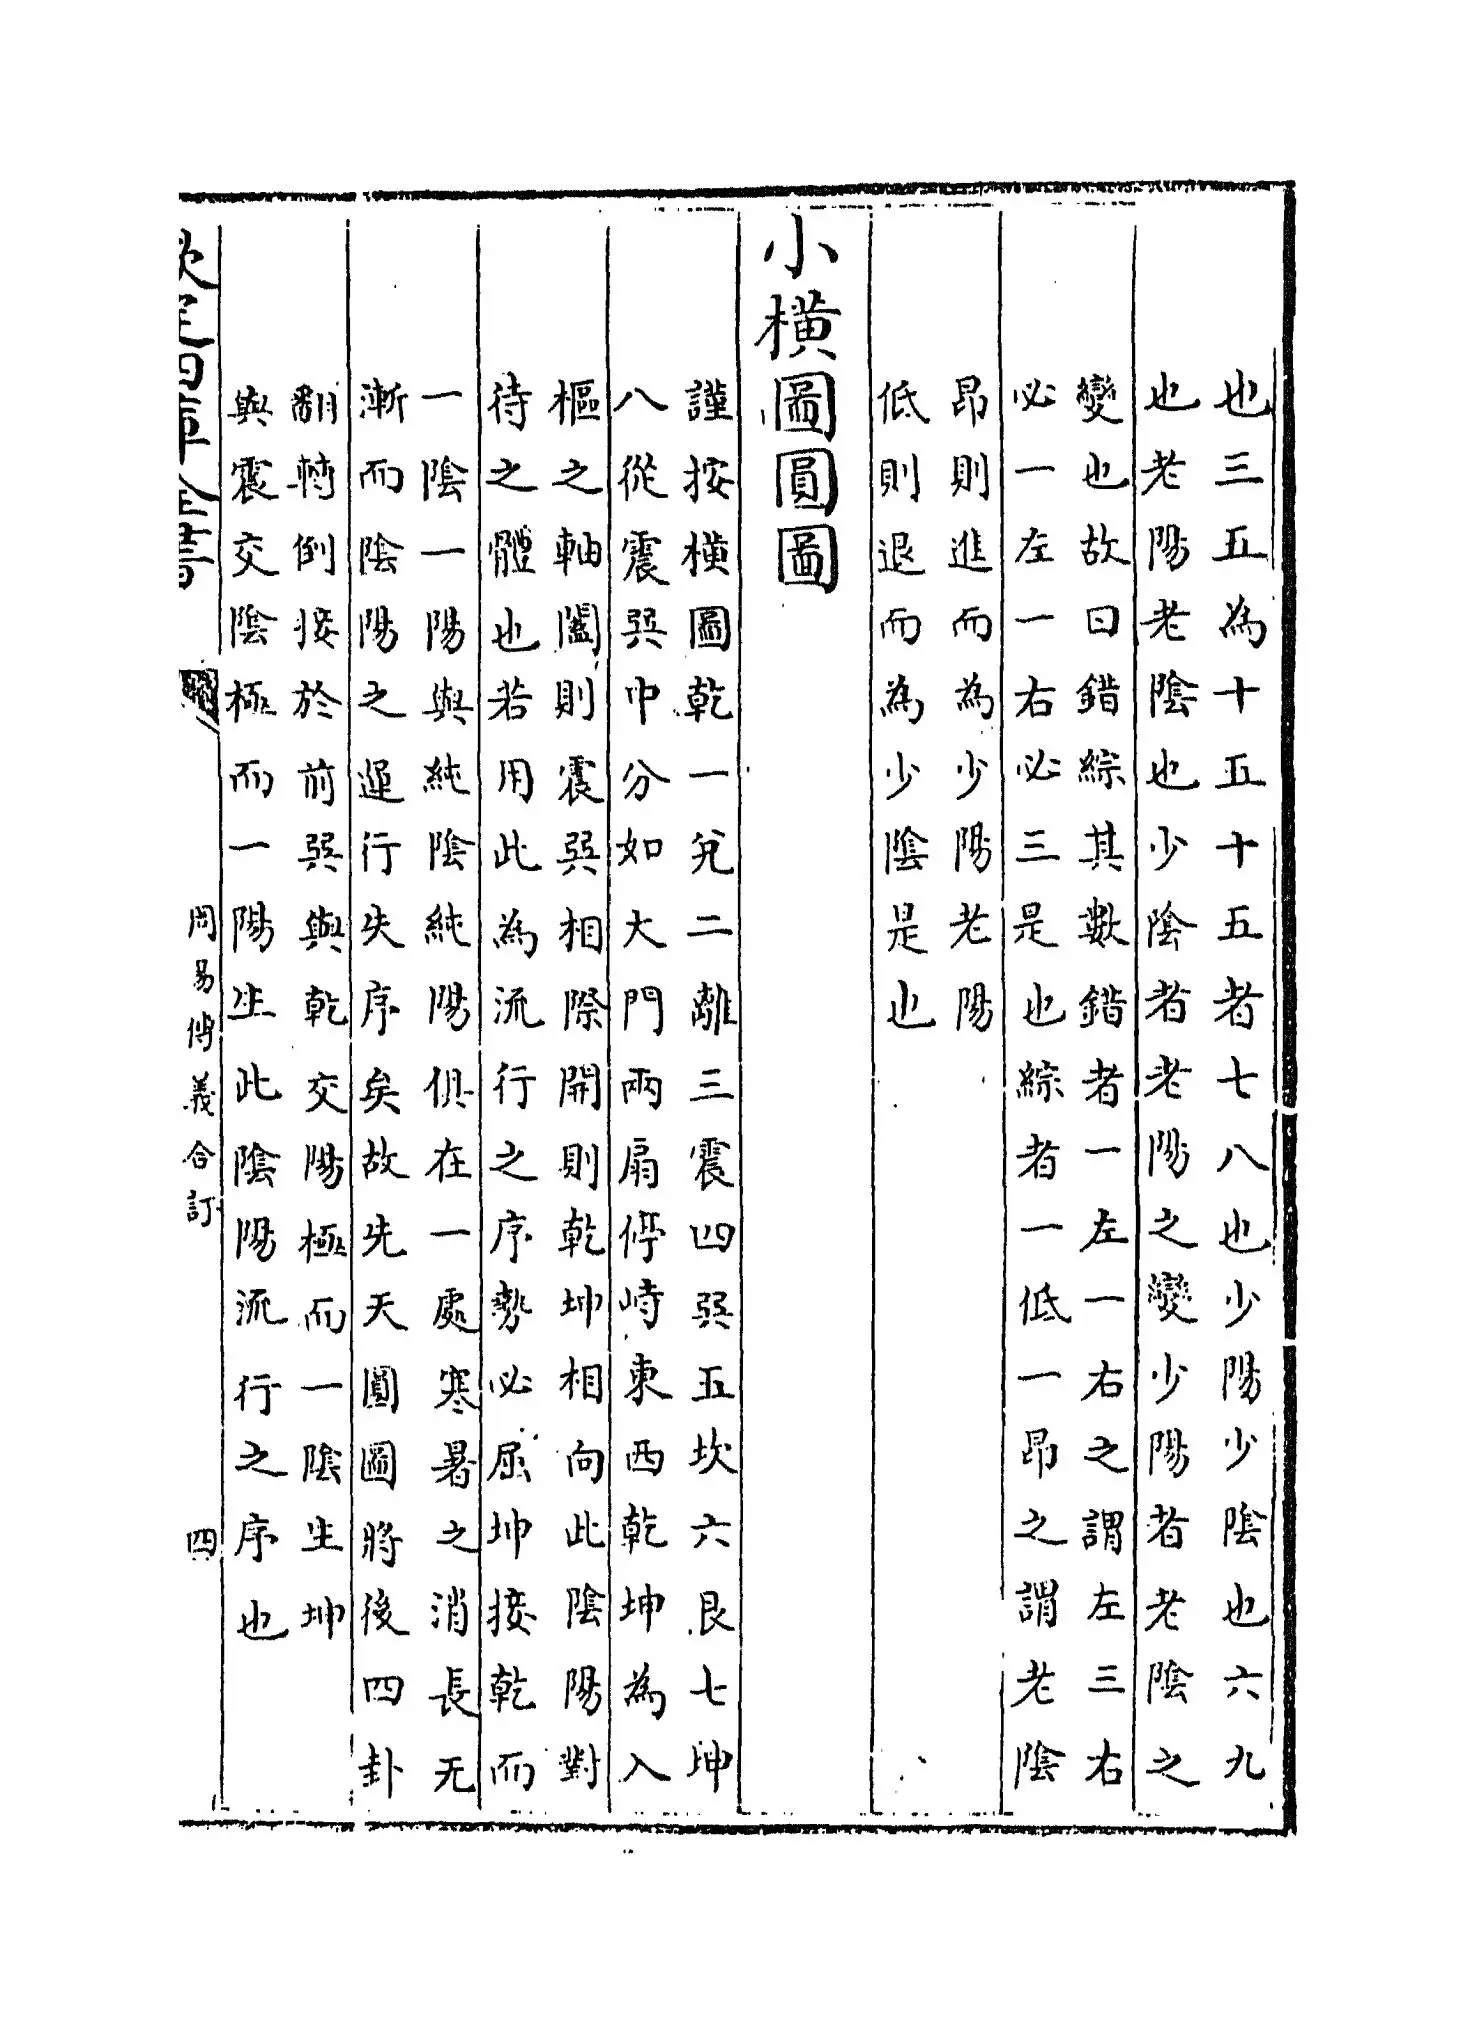 也三五為十五五十五者七八也少陽少陰也六九
也老陽老陰也少陰者老陽之變少陽者老陰之
變也故曰錯綜其數錯者一左一右之謂左三右
必一左一右必三是也綜者一低一昂之謂老陰
昂則進而為少陽老陽
低則退而為少陰是也
小橫圖圓圖
謹按橫圖乾一兌二離三震四巽五坎六艮七坤
八從震巽巾分如大門兩扇停峙東西乾坤為入
樞之軸闔則震巽相際開則乾坤相向此陰陽對
待之體也若用此為流行之序勢必屈坤接乾而
一陰一陽與純陰純陽俱在一處寒暑之消長无
漸而陰陽之運行失序矣故先天圓圖將後四卦
翻轉倒接於前巽與乾交陽極而一陰生坤
與震交陰極而一陽生此陰陽流行之序也
欽定四庫全書
周易傳義合訂
四